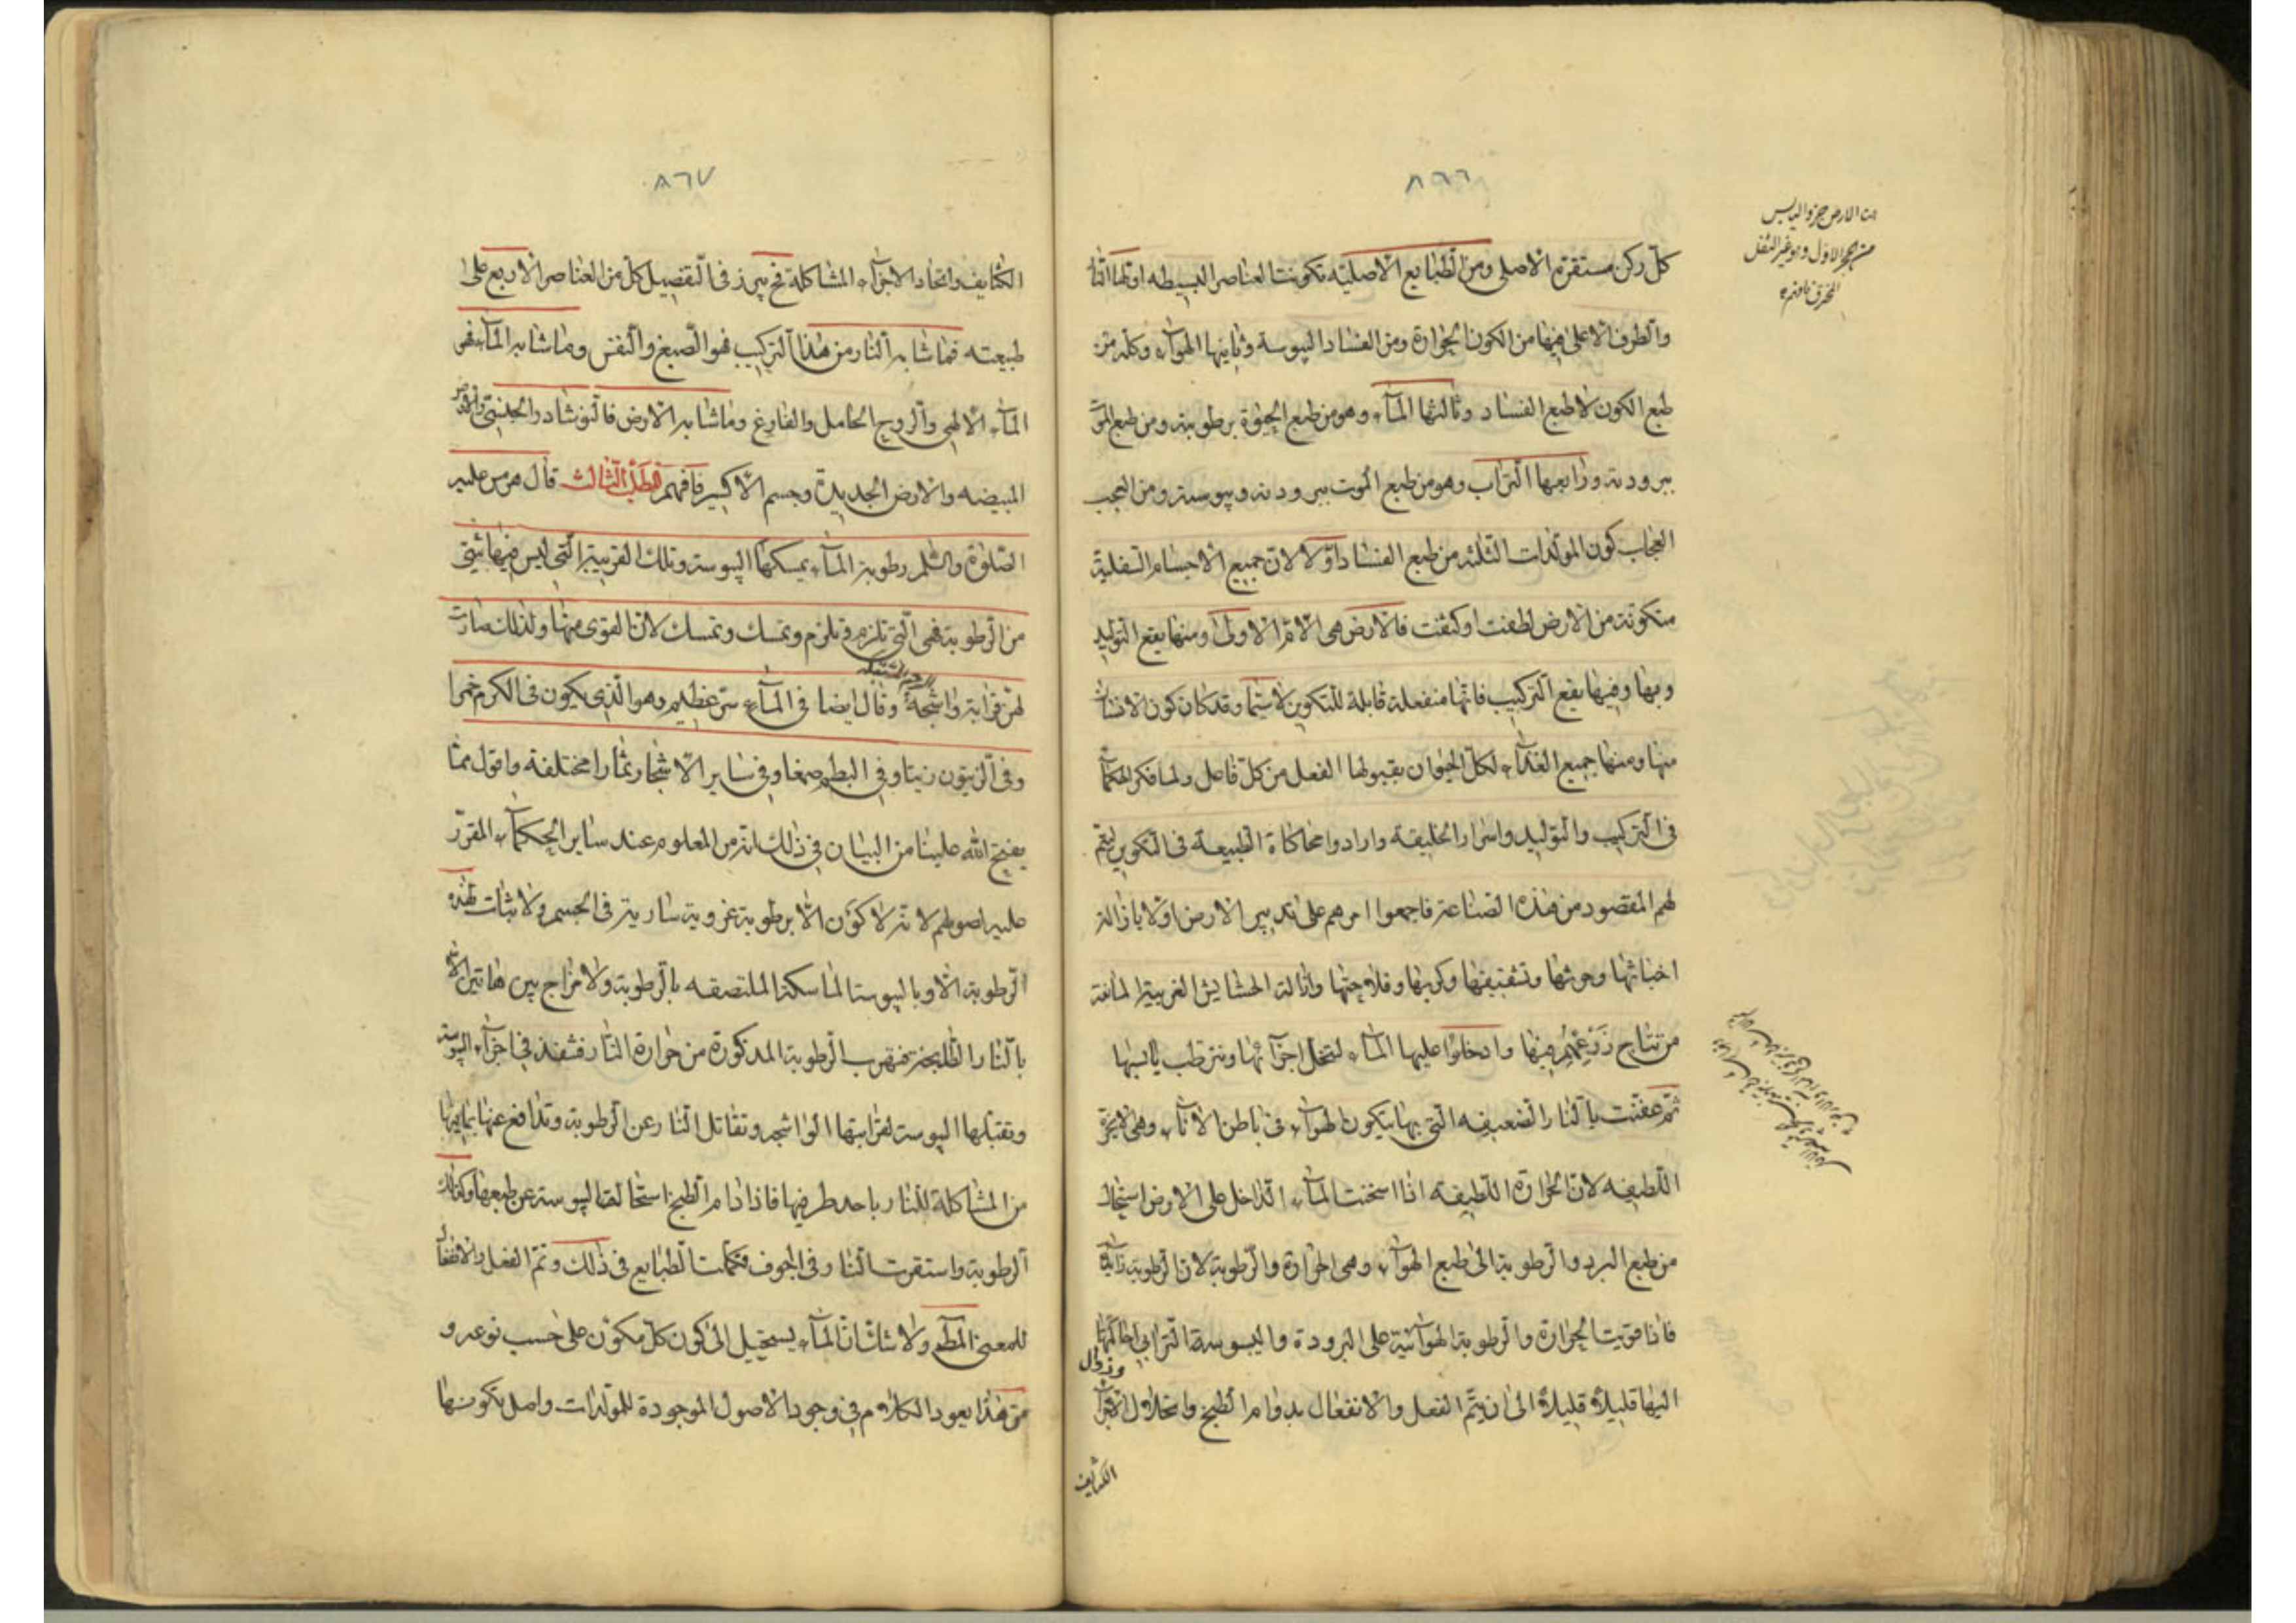 ٨٦٦
كلّ ركن مستقرّه الاصلى ومن الطبايع الاصليّه تكونت العناصر البسيطه اولها النار
والطرف الاعلى فيها من الكون الحرارة ومن الفساد اليبوسة وثانيها الهوآء وكله من
طبع الكون لا طبع الفساد وثالثها المآء وهو من طبع الحيوة برطوبته ومن طبع الموت
ببرودته ورابعها التراب وهو من طبع الموت ببرودته ويبوسته ومن العجب
العجاب كون المولدات الثلثه من طبع الفساد اوّلا لان جميع الاجسام السفلية
متكونة من الارض لطفت او كثفت فالارض هى الامّ الاولى ومنها يقع التوليد
وبها وفيها يقع التركيب فانها منفعلة قابلة للتكوين لا سيّما وقد كان كون الانسان
منها ومنها جميع الغذآء لكل الحيوان بقبولها الفعل من كلّ فاعل ولما فكر الحكمآء
فى التركيب والتوليد واسرار الخليقه وارادوا محاكاة الطبيعة فى التكوين ليتم
لهم المقصود من هذه الصناعة فاجمعوا امرهم على تدبير الارض اولا بازالة
اخباثها وحرثها وتشقيقها وكربها وفلاحتها وازالة الحشايش الغريبة المانعة
من نتايج زَرْعهم فيها وادخلوا عليها المآء لتحلّ اجزآئها وترطب يابسها
ثمّ عفنت بالنار الضعيفه التى بها يتكون الهوآء فى باطن الانآء وهى الحرّة
اللطيفه لان الحرارة اللطيفه اذا اسخنت المآء الداخل على الارض استحال
من طبع البرد والرطوبة الى طبع الهوآء وهى الحرارة والرطوبة لان الرطوبة ذاتية
فاذا قويت الحرارة والرطوبة الهوآئية على البرودة واليبوسة الترابية احالتها
اليها قليلاً قليلاً الى ان يتمّ الفعل والانفعال بدوام الطبخ وانحلال الاجزآء
وزوال
الكثايف
ان الارض جزو اليابس
من الحجر الاول وهو غير الثفل
المحترق فافهم
٨٦٧
الكثايف واتحاد الاجزآء المشاكلة فح يبرز فى التفصيل كل من العناصر الاربع على
طبيعته فما شابه النار من هذا التركيب فهو الصبغ والنفس وما شابه المآء فهى
المآء الالهى والروح الحامل والفارغ وما شابه الارض فالنوشادر الجلنبى والارض
المبيضه والارض الجديدة وجسم الاكسير فافهم المطلب الثالث قال هرمس عليه
الصلوة والسلم رطوبة المآء يمسكها اليبوسة وتلك القريبة التى ليس فيها شئ
من الرطوبة فهى التى تلزم وتلزم وتمسك وتمسك لان القوى منها ولذلك صارت
لهن قرابة واشجة وقال ايضا فى المآء سرّ عظيم وهو الذى يكون فى الكرم خمرا
وفى الزيتون زيتا وفى البطم صمغا وفى ساير الاشجار ثمارا مختلفه واقول مما
يفتح الله علينا من البيان فى ذلك انه من المعلوم عند ساير الحكمآء المقرّر
عليه اصولهم لانه لا كوّن الا برطوبة غروية سارية فى الجسم ولا ثبات لهذه
الرطوبة الّا وباليبوسة الماسكة الملتصقه بالرطوبة ولا مزاج بين هاتين الا
بالنار الطابخة فتهرب الرطوبة المذكورة من حرارة النار فتنفذ فى اجزآء اليبوسة
وتقبلها اليبوسة لقرابتها الواشجه وتقاتل النار عن الرطوبة وتدافع عنها بما فيها
من المشاكلة للنار باحد طرفيها فاذا دام الطبخ استحالت اليبوسة عن طبعها وكذلك
الرطوبة واستقرت النار فى الجوف فتكلمت الطبايع فى ذلك وتمّ الفعل والانفعال
للمعنى المطم ولا شك ان المآء يستحيل الى كون كلّ مكوّن على حسب نوعه و
من هذا يعود الكلام فى وجود الاصول الموجودة للمولدات واصل تكونها